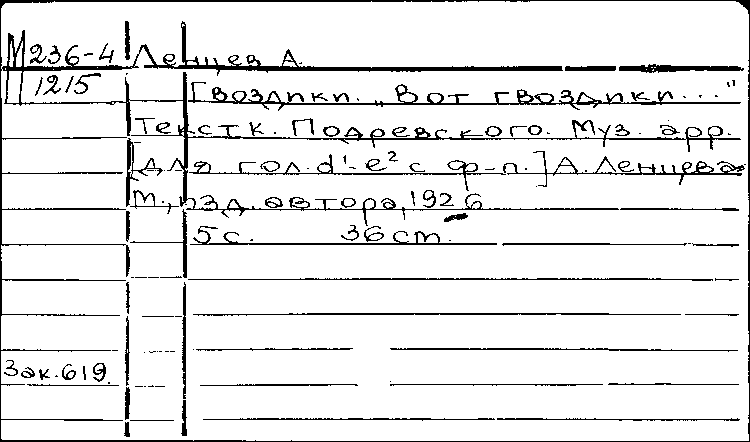 М236-4 Ленцев А.
1215
Гвоздики. „Вот гвоздики..."
Текст К. Подревского. Муз. арр.
[для гол. d¹-e² с ф-п.] А. Ленцева
М., изд. автора, 1926
5 с. 36 cm.
Зак. 619.